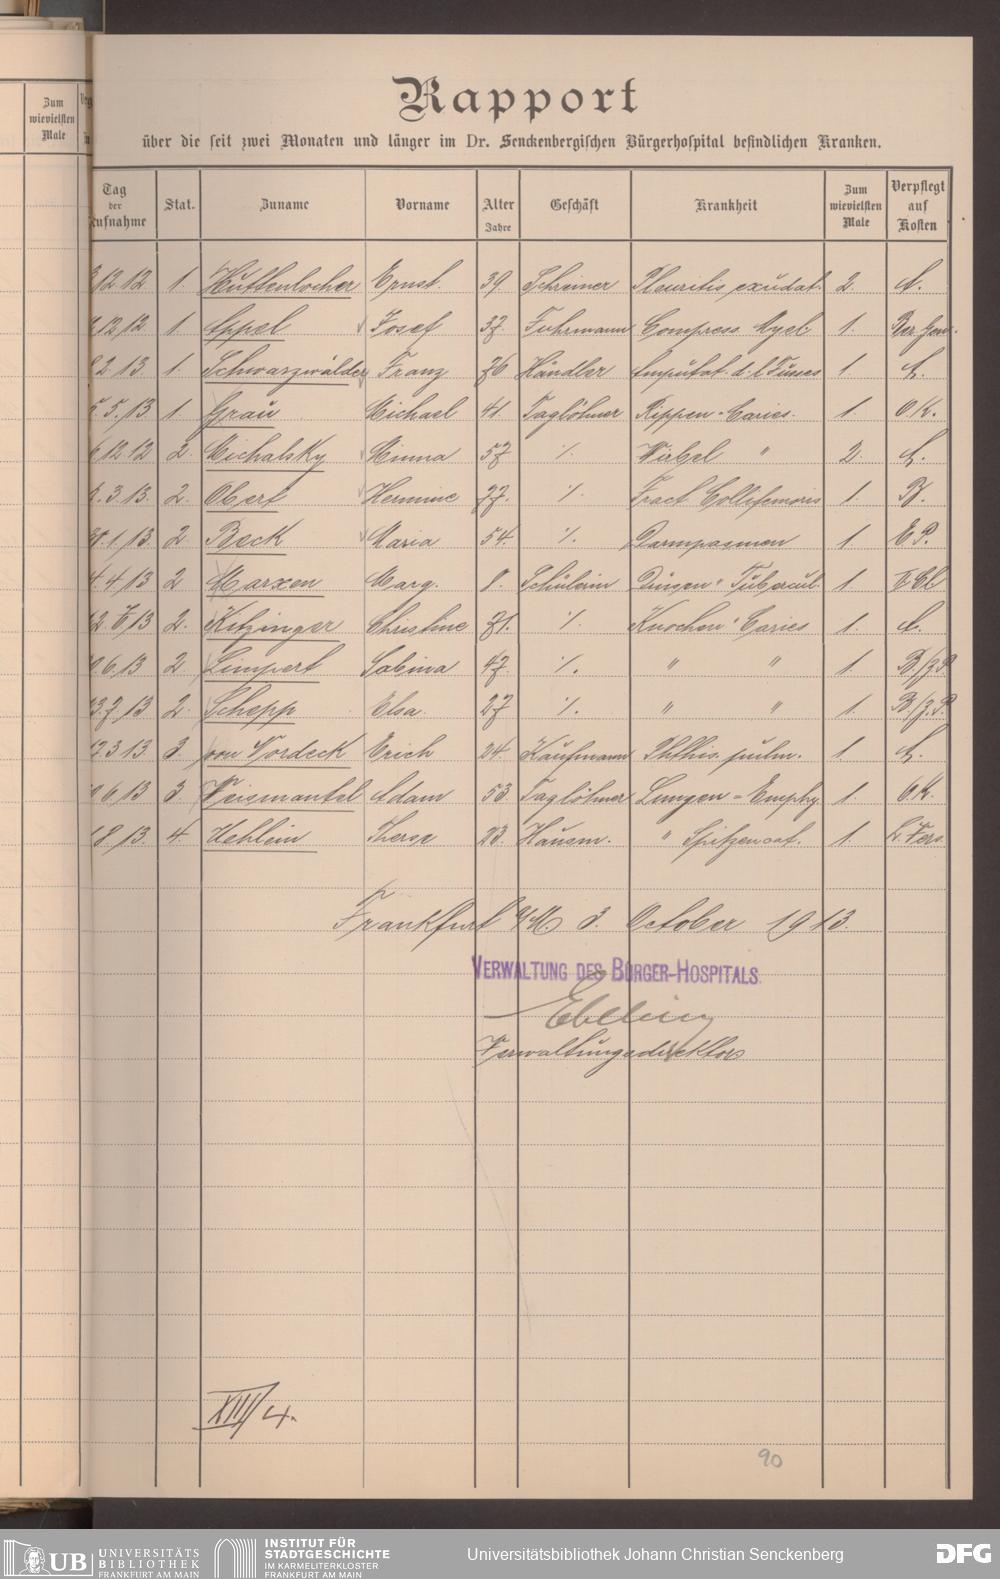 Zum
wievielsten
Male
Rapport
über die seit zwei Monaten und länger im Dr. Senckenbergischen Bürgerhospital befindlichen Kranken.
Tag der Aufnahme Stat. Zuname Vorname Alter Jahre Geschäft Krankheit Zum wievielsten Male Verpflegt auf Kosten
12 12 1. Huttenlocher Ernst. 39 Schreiner Pleuritis exudat. 2.
12/12 1. Appel Josef 37. Fuhrmann Compress Myel. 1.
2 13. 1. Schwarzwälder Franz 76 Händler Amputat. d. l. Fusses 1
5./13 1. Grau Michael 41. Taglöhner Rippen-Caries. 1. O.K.
12 12 2. Michalsky Minna 57 ·/. Wirbel " 2.
3. 13. 2. Obert Hermine 77. ·/. Fract. Collifemoris 1. B.
1/13. 2. Beck Maria 54. ·/. 1. E.P.
4./13 2 Marxen Marg. 8. Schülerin Drüsen " Tubercul. 1.
13 2. Kitzinger Christine 71. ·/. Knochen " Caries 1.
6./13 2. Limpert Sabina 47. ·/. " " 1. B./z.P.
13.7./13 2. Schepp Elsa. 27 ·/. " " 1. B./z.P.
3 13. 3. von Nordeck Erich 24. Kaufmann Phthis. pulm. 1.
6./13 3. Weismantel Adam 53 Taglöhner Lungen-Emphy. 1. O.K.
8./13. 4. Uehlein Therese 23. Hausm. " Spitzencat. 1.
Frankfurt a/M 3. October 1913.
VERWALTUNG DES BÜRGER-HOSPITALS.
Ebeling
Verwaltungsdirektor
XIII/4.
90
UB UNIVERSITÄTS
BIBLIOTHEK
FRANKFURT AM MAIN
INSTITUT FÜR
STADTGESCHICHTE
IM KARMELITERKLOSTER
FRANKFURT AM MAIN
Universitätsbibliothek Johann Christian Senckenberg
DFG